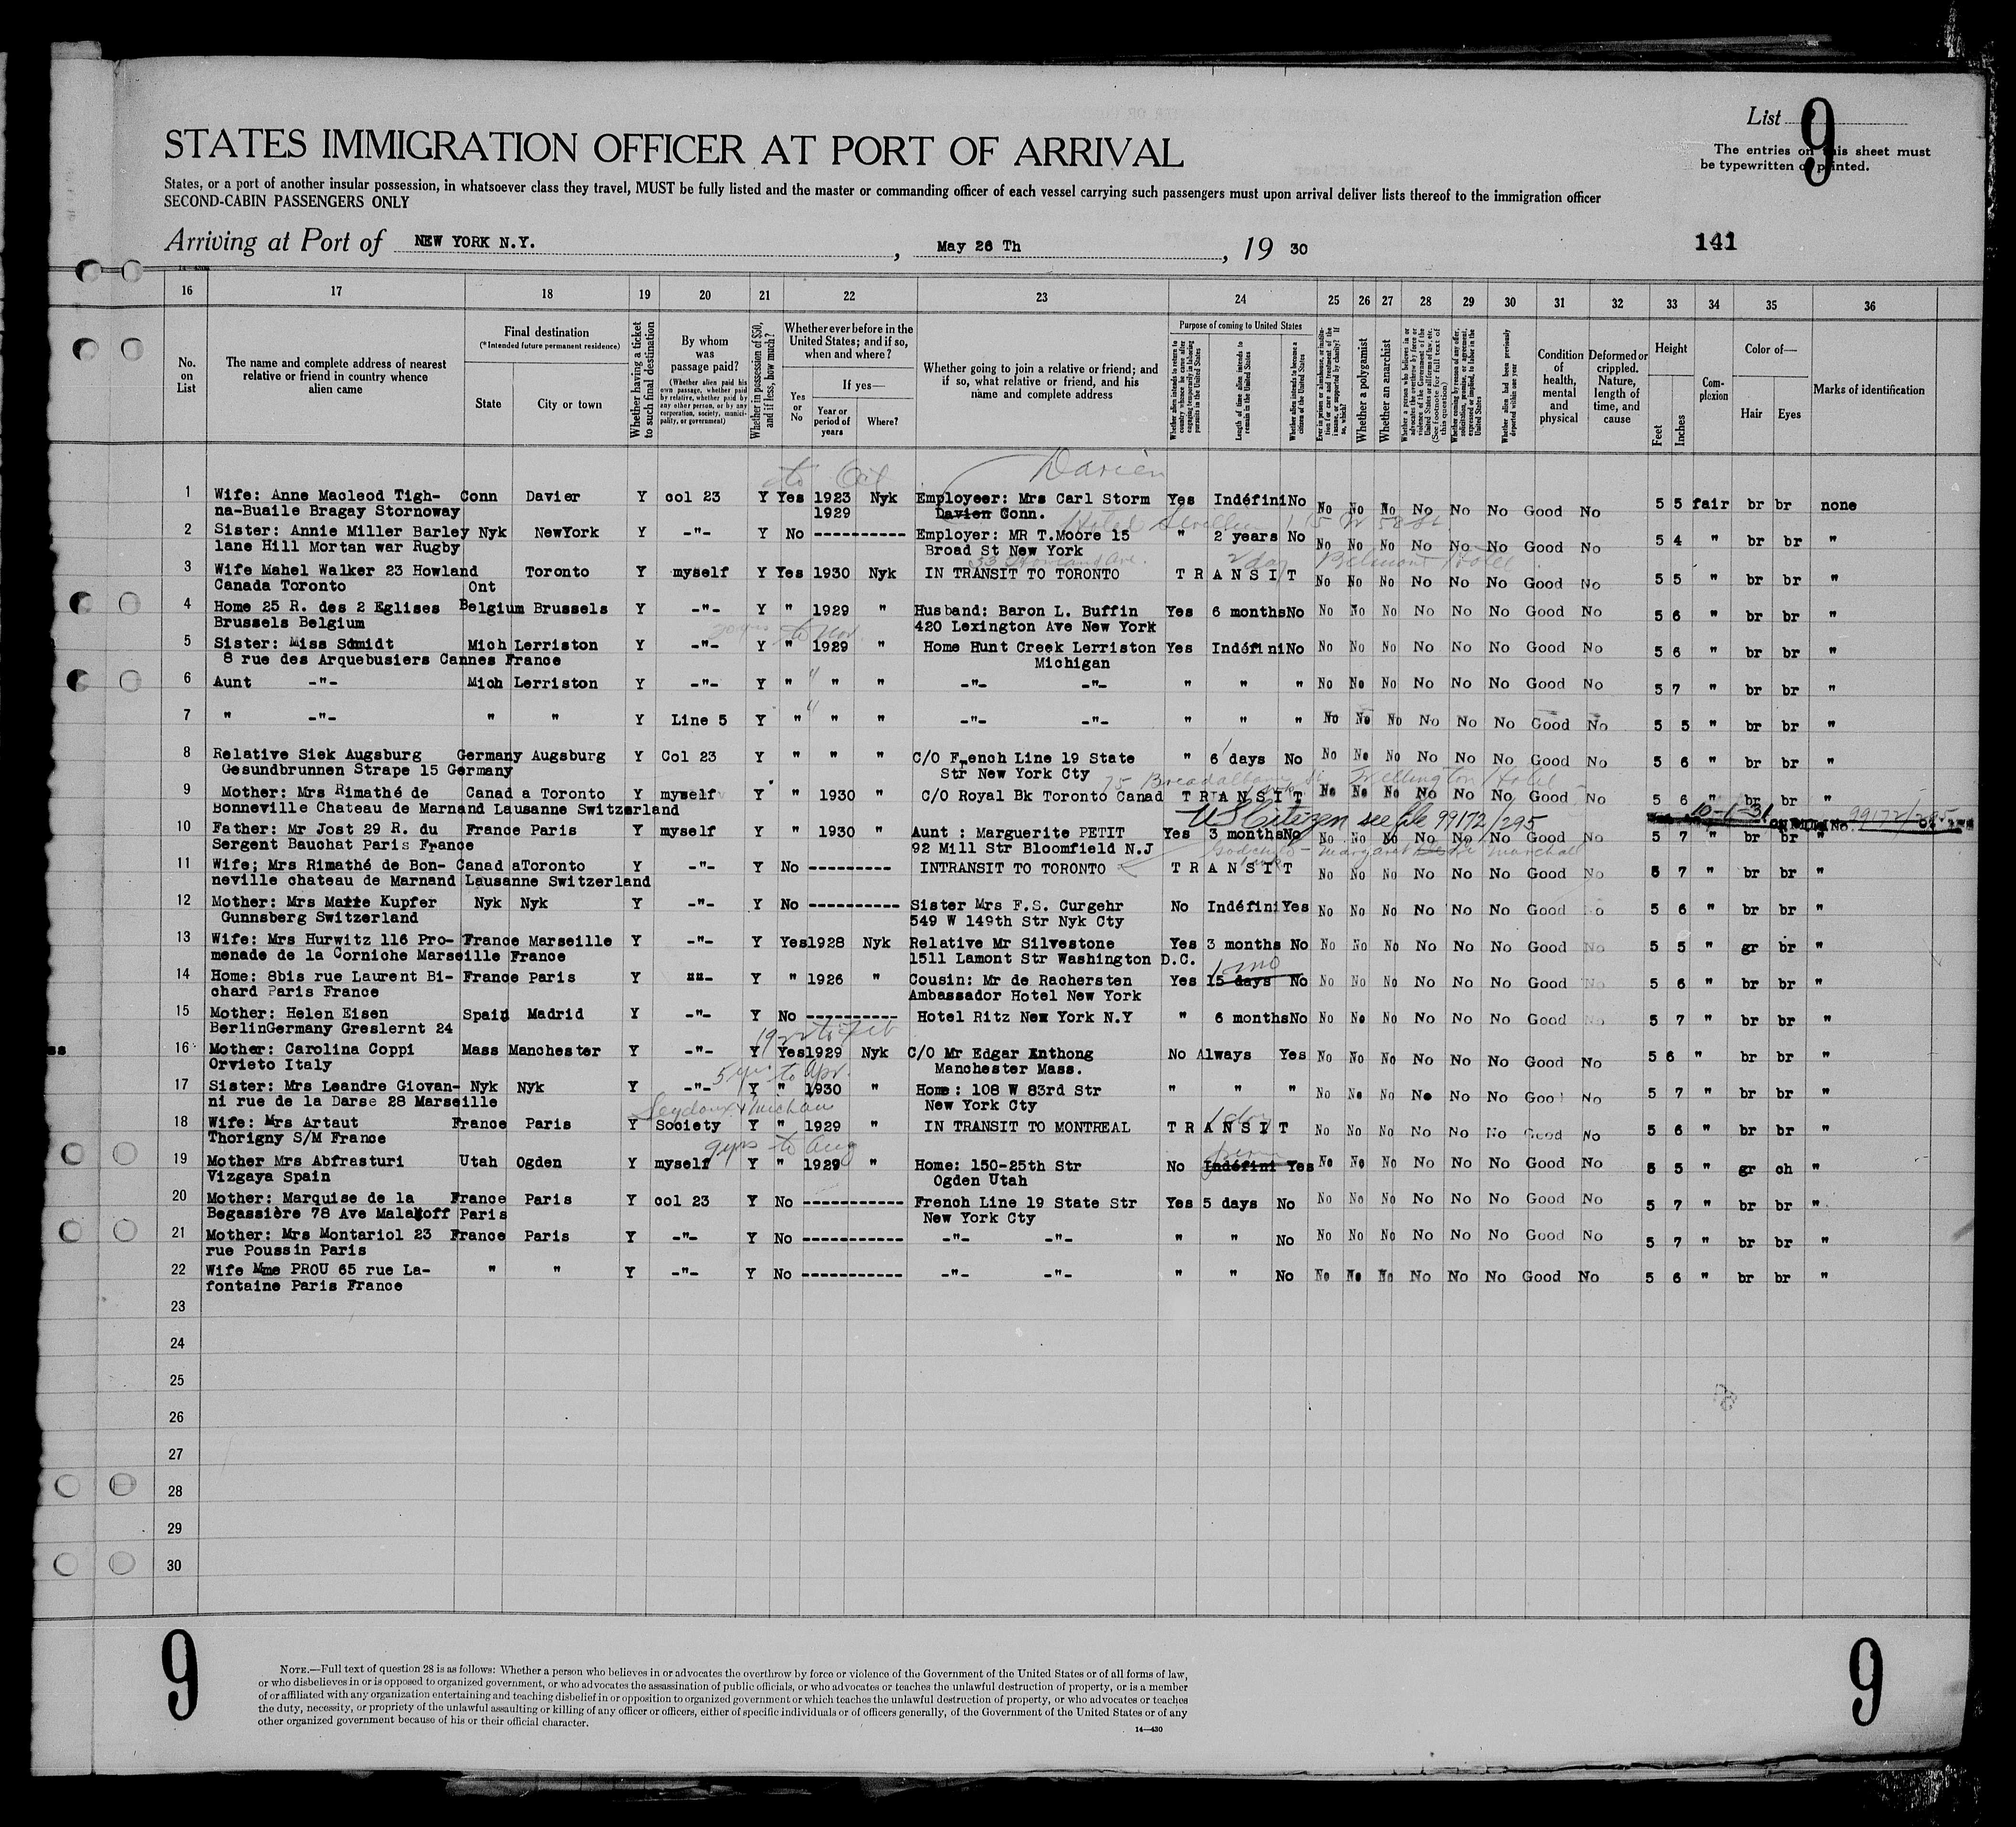 List 9
The entries on this sheet must
be typewritten or printed.
STATES IMMIGRATION OFFICER AT PORT OF ARRIVAL
States, or a port of another insular possession, in whatsoever class they travel, MUST be fully listed and the master or commanding officer of each vessel carrying such passengers must upon arrival deliver lists thereof to the immigration officer
SECOND-CABIN PASSENGERS ONLY
Arriving at Port of NEW YORK N.Y. , May 26 Th , 19 30
141
16 17 18 19 20 21 22 23 24 25 26 27 28 29 30 31 32 33 34 35 36
No. on List
The name and complete address of nearest relative or friend in country whence alien came
Final destination
(*Intended future permanent residence)
State
City or town
Whether having a ticket to such final destination
By whom was passage paid?
(Whether alien paid his own passage, whether paid by relative, whether paid by any other person, or by any corporation, society, municipality, or government)
Whether in possession of $50, and if less, how much?
Whether ever before in the United States; and if so, when and where?
Yes or No
If yes—
Year or period of years
Where?
Whether going to join a relative or friend; and if so, what relative or friend, and his name and complete address
Purpose of coming to United States
Length of time alien intends to remain in the United States
Whether alien intends to become a citizen of the United States
Whether a polygamist
Whether an anarchist
Whether alien had been previously deported within one year
Condition of health, mental and physical
Deformed or crippled. Nature, length of time, and cause
Height
Feet
Inches
Complexion
Color of—
Hair
Eyes
Marks of identification
to Oct Darien
1 Wife: Anne Macleod Tigh- Conn Davier Y col 23 Y Yes 1923 Nyk Employeer: Mrs Carl Storm Yes Indéfini No No No No No No No Good No 5 5 fair br br none
na-Buaile Bragay Stornoway 1929 Davien Conn.
2 Sister: Annie Miller Barley Nyk NewYork Y -"- Y No ---------- Employer: MR T.Moore 15 " 2 years No No No No No No No Good No 5 4 " br br "
lane Hill Mortan war Rugby Broad St New York
33 Howland Ave. 2 day Belmont Hotel
3 Wife Mahel Walker 23 Howland Toronto Y myself Y Yes 1930 Nyk IN TRANSIT TO TORONTO T R A N S I T No No No No No No Good No 5 5 " br br "
Canada Toronto Ont
4 Home 25 R. des 2 Eglises Belgium Brussels Y -"- Y " 1929 " Husband: Baron L. Buffin Yes 6 months No No No No No No No Good No 5 6 " br br "
Brussels Belgium 420 Lexington Ave New York
to Nov.
5 Sister: Miss Schmidt Mich Lerriston Y -"- Y " 1929 " Home Hunt Creek Lerriston Yes Indéfini No No No No No No No Good No 5 6 " br br "
8 rue des Arquebusiers Cannes France Michigan
6 Aunt -"- Mich Lerriston Y -"- Y " " " -"- -"- " " " No No No No No No Good No 5 7 " br br "
7 " -"- " " Y Line 5 Y " " " -"- -"- " " " No No No No No No Good No 5 5 " br br "
8 Relative Siek Augsburg Germany Augsburg Y Col 23 Y " " " C/O French Line 19 State " 6 days No No No No No No No Good No 5 6 " br br "
Gesundbrunnen Strape 15 Germany Str New York Cty
75 Breadalbane St Wellington Hotel
9 Mother: Mrs Rimathé de Canad a Toronto Y myself Y " 1930 " C/O Royal Bk Toronto Canad T R A N S I T No No No No No No Good No 5 6 " br br "
Bonneville Chateau de Marnand Lausanne Switzerland
US Citizen see file 99172/295 10-1-31 99172/295
10 Father: Mr Jost 29 R. du France Paris Y myself Y " 1930 " Aunt : Marguerite PETIT Yes 3 months No No No No No No No Good No 5 7 " br br "
Sergent Bauchat Paris France 92 Mill Str Bloomfield N.J
11 Wife; Mrs Rimathé de Bon- Canad aToronto Y -"- Y No --------- INTRANSIT TO TORONTO T R A N S I T No No No No No No Good No 5 7 " br br "
neville chateau de Marnand Lausanne Switzerland
12 Mother: Mrs Matte Kupfer Nyk Nyk Y -"- Y No ---------- Sister Mrs F.S. Curgehr No Indéfini Yes No No No No No No Good No 5 6 " br br "
Gunnsberg Switzerland 549 W 149th Str Nyk Cty
13 Wife: Mrs Hurwitz 116 Pro- France Marseille Y -"- Y Yes 1928 Nyk Relative Mr Silvestone Yes 3 months No No No No No No No Good No 5 5 " gr br "
menade de la Corniche Marseille France 1511 Lamont Str Washington D.C.
1 mo
14 Home: 8bis rue Laurent Bi- France Paris Y "- Y " 1926 " Cousin: Mr de Rachersten Yes 15 days No No No No No No No Good No 5 6 " br br "
chard Paris France Ambassador Hotel New York
15 Mother: Helen Eisen Spain Madrid Y -"- Y No ---------- Hotel Ritz New York N.Y " 6 months No No No No No No No Good No 5 7 " br br "
BerlinGermany Greslernt 24
19 yr to Feb
ss 16 Mother: Carolina Coppi Mass Manchester Y -"- Y Yes 1929 Nyk C/O Mr Edgar Anthong No Always Yes No No No No No No Good No 5 6 " br br "
Orvieto Italy Manchester Mass.
5 yrs to Apr.
17 Sister: Mrs Leandre Giovan- Nyk Nyk Y -"- Y " 1930 " Home: 108 W 83rd Str " " " No No No No No No Good No 5 7 " br br "
ni rue de la Darse 28 Marseille New York Cty
Seydoux & Michau 1 day
18 Wife: Mrs Artaut France Paris Y Society Y " 1929 " IN TRANSIT TO MONTREAL T R A N S I T No No No No No No Good No 5 6 " br br "
Thorigny S/M France
9 yrs to Aug perm
19 Mother Mrs Abfrasturi Utah Ogden Y myself Y " 1929 " Home: 150-25th Str No Indéfini Yes No No No No No No Good No 5 5 " gr ch "
Vizgaya Spain Ogden Utah
20 Mother: Marquise de la France Paris Y col 23 Y No ----------- French Line 19 State Str Yes 5 days No No No No No No No Good No 5 7 " br br "
Begassière 78 Ave Malakoff Paris New York Cty
21 Mother: Mrs Montariol 23 France Paris Y -"- Y No ----------- -"- -"- " " No No No No No No No Good No 5 7 " br br "
rue Poussin Paris
22 Wife Mme PROU 65 rue La- " " Y -"- Y No ----------- -"- -"- " " No No No No No No No Good No 5 6 " br br "
fontaine Paris France
23
24
25
26
27
28
29
30
9 9
NOTE.—Full text of question 28 is as follows: Whether a person who believes in or advocates the overthrow by force or violence of the Government of the United States or of all forms of law,
or who disbelieves in or is opposed to organized government, or who advocates the assassination of public officials, or who advocates or teaches the unlawful destruction of property, or is a member
of or affiliated with any organization entertaining and teaching disbelief in or opposition to organized government or which teaches the unlawful destruction of property, or who advocates or teaches
the duty, necessity, or propriety of the unlawful assaulting or killing of any officer or officers, either of specific individuals or of officers generally, of the Government of the United States or of any
other organized government because of his or their official character.
14—430